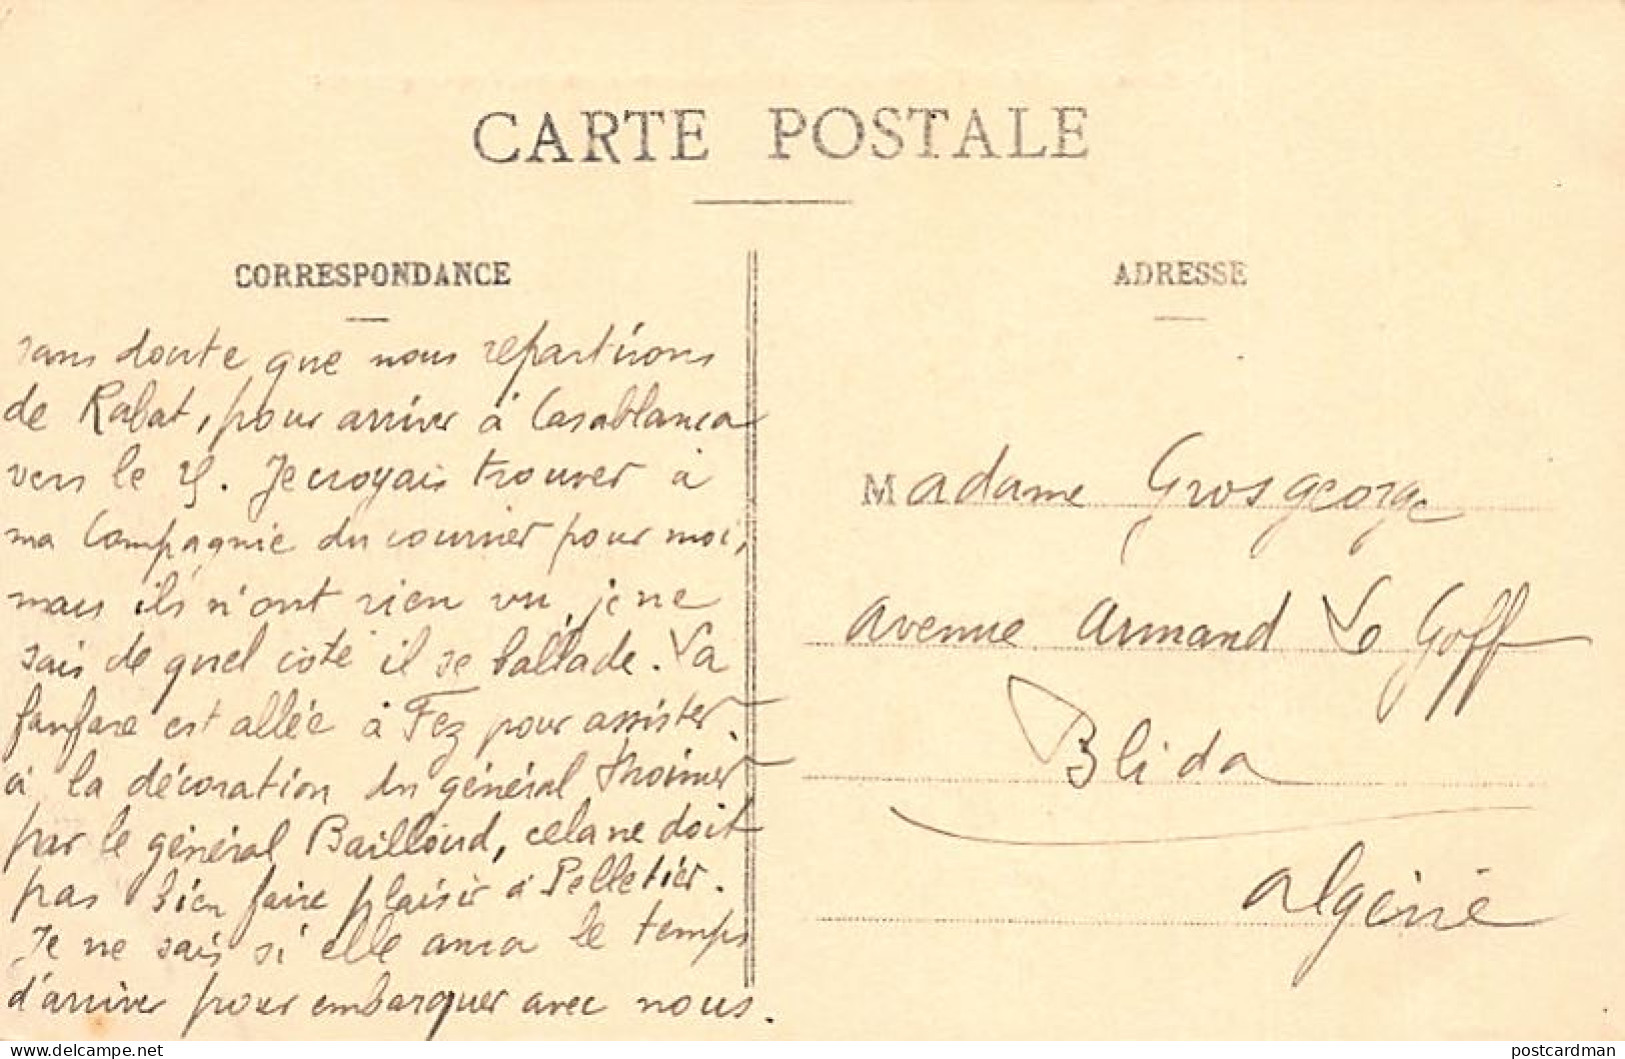 CARTE POSTALE
CORRESPONDANCE
sans doute que nous repartirons
de Rabat, pour arriver à Casablanca
vers le 25. Je croyais trouver à
ma Compagnie du courrier pour moi,
mais ils n'ont rien vu, je ne
sais de quel côté il se ballade. La
fanfare est allée à Fez pour assister
à la décoration du général
par le général Bailloud, cela ne doit
pas bien faire plaisir à Pelletier.
Je ne sais si elle aura le temps
d'arriver pour embarquer avec nous.
ADRESSE
Madame Grosgeorge
avenue Armand Le Goff
Blida
Algérie
delcampe.net
postcardman